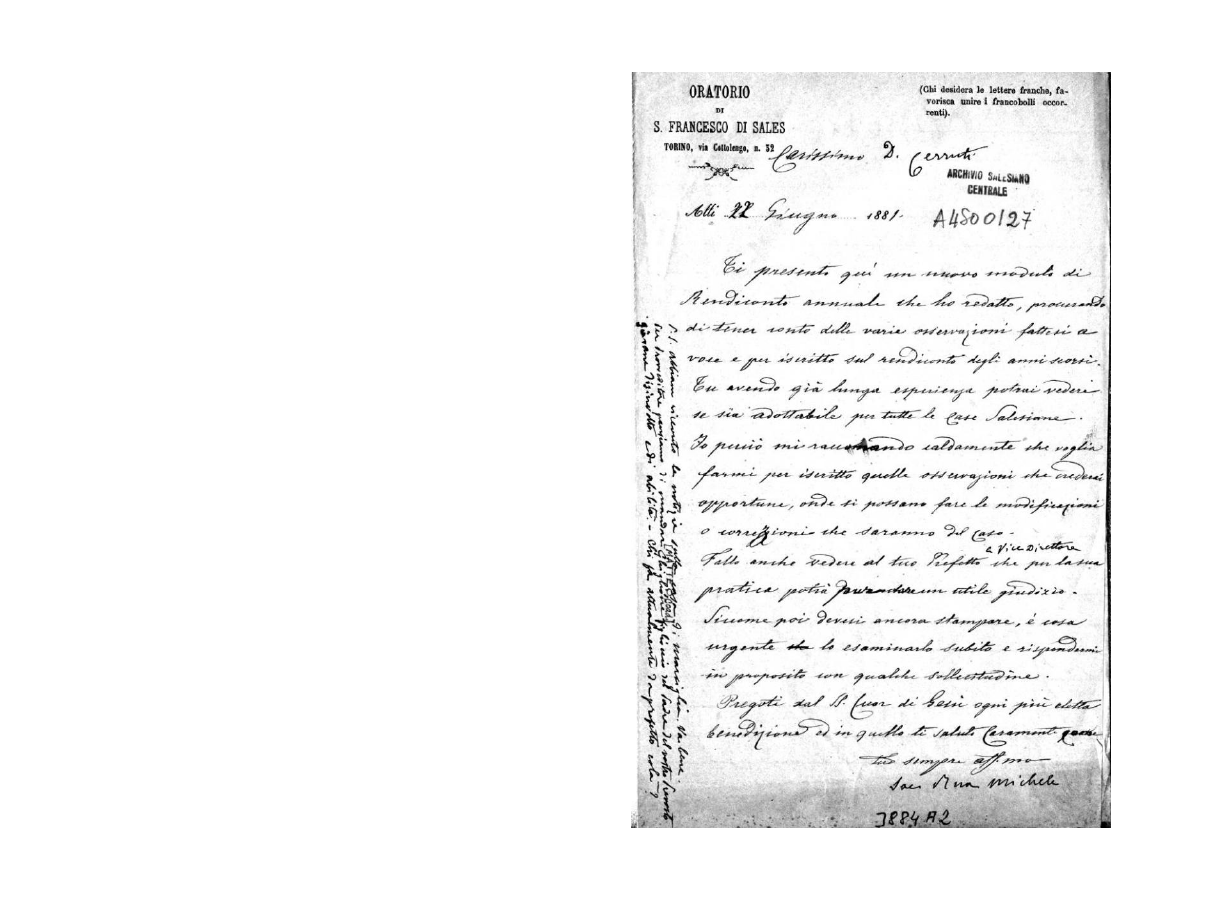 ORATORIO
DI
S. FRANCESCO DI SALES
TORINO, via Cottolengo, n. 32
(Chi desidera le lettere franche, fa-
vorisca unire i francobolli occor-
renti).
Carissimo D. Cerruti
ARCHIVIO SALESIANO
CENTRALE
Atti 22 Giugno 1881.
A4500127
Ti presento quì un nuovo modulo di
Rendiconto annuale che ho redatto, procurando
di tener conto delle varie osservazioni fattesi a
voce e per iscritto sul rendiconto degli anni scorsi.
Tu avendo già lunga esperienza potrai vedere
se sia adottabile per tutte le Case Salesiane.
Io perciò mi raccomando caldamente che voglia
farmi per iscritto quelle osservazioni che crederai
opportune, onde si possano fare le modificazioni
o correzioni che saranno del Caso.
e Vice Direttore
Fallo anche vedere al tuo Prefetto che per la sua
pratica potrà un utile giudizio.
Siccome poi devesi ancora stampare, è cosa
urgente lo esaminarlo subito e rispondermi
in proposito con qualche sollecitudine.
Pregoti dal SS. Cuor di Gesù ogni più eletta
benedizione ed in quello ti saluto Caramente
Tuo sempre aff.mo
Sac. Rua Michele
3884 A2
P.S. abbiam ricevuto le notizie di Marsiglia. Va bene
per provveditore pensiamo di mandar del padre del vostro
giovane disinvolto e di abilità. - Chi fa attualmente da prefetto colà?